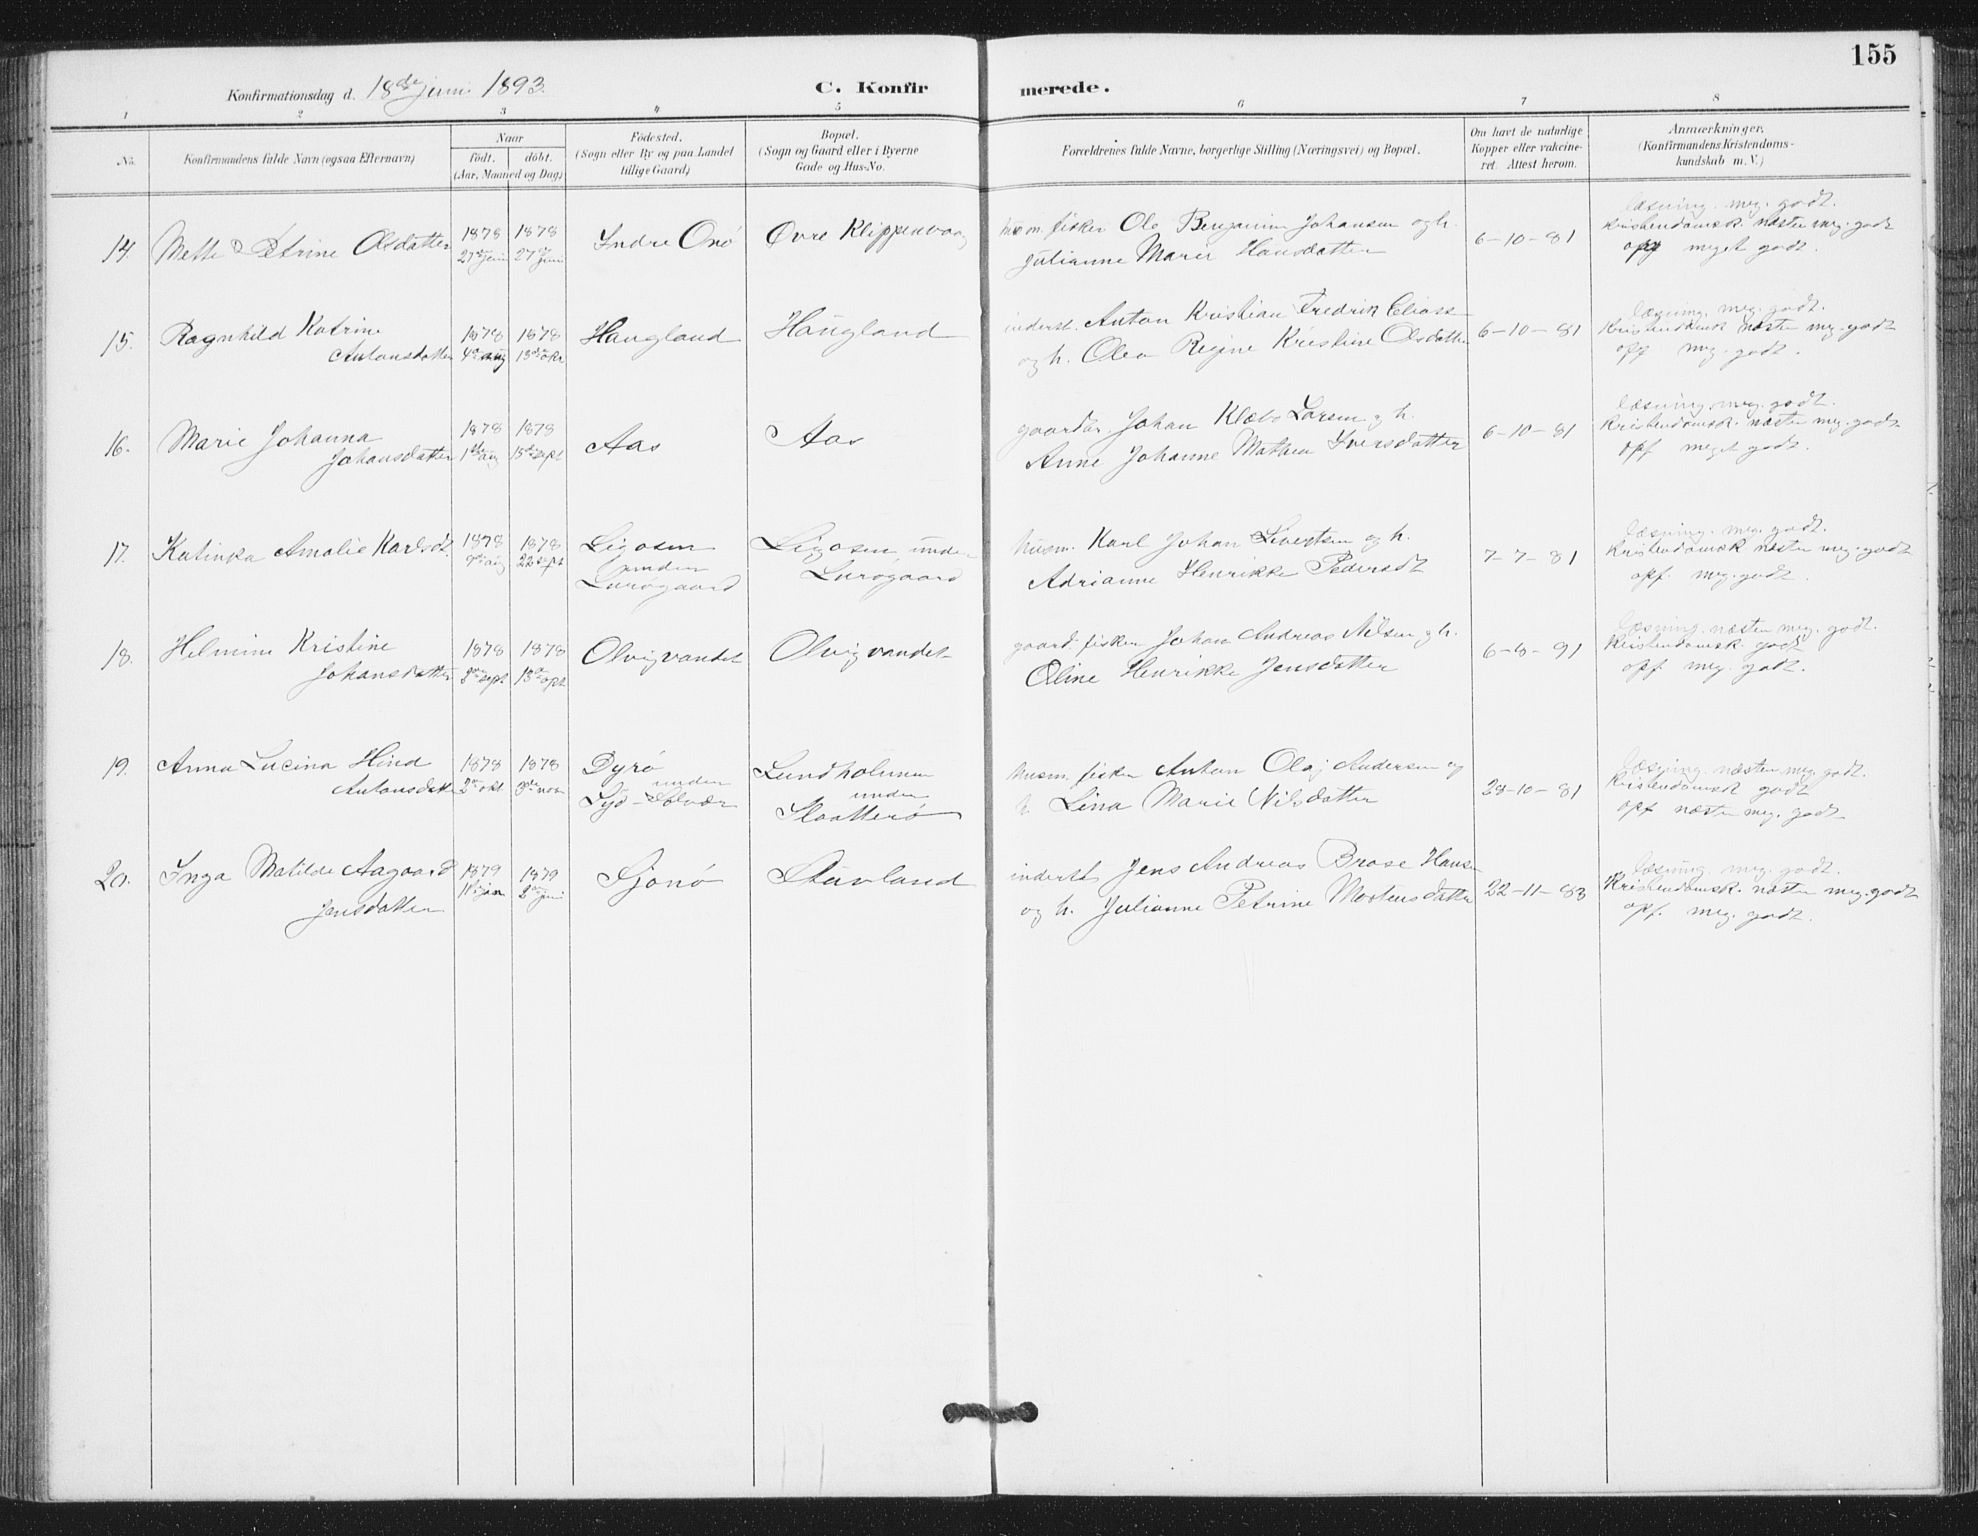 155
Konfirmationsdag d. 18de juni 1893.
C. Konfirmerede.
1 2 3 4 5 6 7 8
No.
Konfirmandens fulde Navn (ogsaa Efternavn)
Naar
født. døbt.
(Aar, Maaned og Dag)
Fødested.
(Sogn eller By og paa Landet
tillige Gaard)
Bopæl.
(Sogn og Gaard eller i Byerne
Gade og Hus-No.
Forældrenes fulde Navne, borgerlige Stilling (Næringsvei) og Bopæl.
Om havt de naturlige
Kopper eller vakcine-
ret. Attest herom.
Anmærkninger.
(Konfirmandens Kristendoms-
kundskab m. V.)
14. Mette Petrine Olsdatter
1878 27de juni
1878 27de juni
Indre Onø
Øvre Klippenvaag
husm. fisker Ole Benjamin Johansen og h.
Julianne Maret Hansdatter
6-10-81
læsning. meg. godt.
Kristendomsk. næsten meg. godt
opf meget godt.
15. Ragnhild Katrine
Antonsdatter
1878 4de aug
1878 13de okt
Haugland
Haugland
inderst. Anton Kristian Fredrik Eliass
og h. Olea Regine Kristine Olsdatter
6-10-81
læsning. meg. godt.
Kristendomsk næsten meg. godt
opf meg. godt.
16. Marie Johanna
Johansdatter
1878 1ste aug
1878 15de sept
Aas
Aas
gaardbr. Johan Klæbo Larsen og h.
Anne Johanne Mathea Iversdatter
6-10-81
læsning. meg. godt.
Kristendomsk. næsten meg. godt
opf meget godt.
17. Katinka Amalie Karlsdt
1878 9de aug
1878 22 sept
Ligosen
under
Lurøgaard
Ligosen under
Lurøgaard
husm. Karl Johan Sivertsen og h.
Adrianne Henrikke Pedersdt
7-7-81
læsning. meg. godt.
Kristendomsk næsten meg. godt
opf. meg. godt.
18. Helmine Kristine
Johansdatter
1878 8de sept
1878
Olvigvandet
Olvigvandet
gaard. fisker Johan Andreas Nilsen og h.
Oline Henrikke Jensdatter
6-8-91
læsning. næsten meg. godt.
Kristendomsk. godt
opf meg. godt.
19. Anna Lucina Hind
Antonsdatter
1878 2de okt
1878 3de nov
Dyrø
under
Syd-Solvær
Lundholmen
under
Slaatterø
husm. fisker Anton Olaj Andersen og
h. Lina Marie Nilsdatter
28-10-81
læsning. næsten meg. godt.
Kristendomsk godt
opf næsten meg. godt
20. Inga Matilde Aagaard
Jensdatter
1879 jan
1879 2de juni
Sjonø
Stuvland
inderst Jens Andreas Brose Hansen
og h. Julianne Petrine Mortensdatter
22-11-83
læsning. meg. godt.
Kristendomsk. næsten meg. godt
opf. meg. godt.